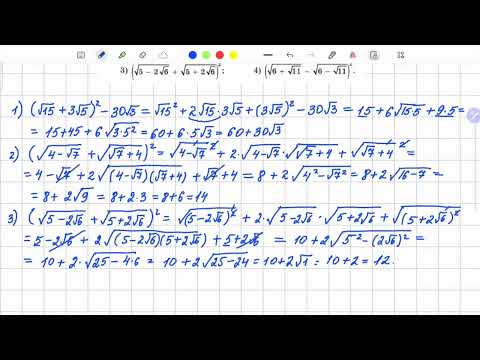 3) (√5 − 2√6 + √5 + 2√6)²; 4) (√6 + √11 − √6 − √11)².
1) (√15 + 3√5)² − 30√3 = √15² + 2√15 · 3√5 + (3√5)² − 30√3 = 15 + 6√15·5 + 9·5 =
= 15 + 45 + 6√3·5² = 60 + 6·5√3 = 60 + 30√3
2) (√4−√7 + √√7+4)² = √4−√7² + 2·√4−√7 · √√7+4 + √√7+4² =
= 4 − √7 + 2√(4−√7)(√7+4) + √7 + 4 = 8 + 2√4²−√7² = 8 + 2√16−7 =
= 8 + 2√9 = 8 + 2·3 = 8 + 6 = 14
3) (√5−2√6 + √5+2√6)² = √(5−2√6)² + 2·√5−2√6 · √5+2√6 + √(5+2√6)² =
= 5 − 2√6 + 2√(5−2√6)(5+2√6) + 5 + 2√6 = 10 + 2√5²−(2√6)² =
= 10 + 2·√25−4·6 = 10 + 2√25−24 = 10 + 2√1 = 10 + 2 = 12.